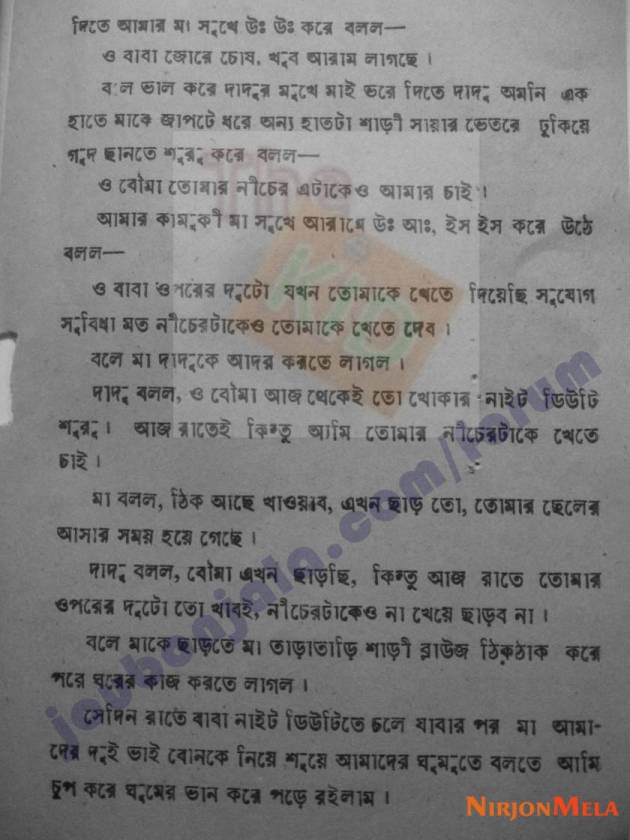 দিতে আমার মা সুখে উঃ উঃ করে বলল—
ও বাবা জোরে চোষ, খুব আরাম লাগছে।
বলে ভাল করে দাদুর মুখে মাই ভরে দিতে দাদু অমনি এক
হাতে মাকে জাপটে ধরে অন্য হাতটা শাড়ী সায়ার ভেতরে ঢুকিয়ে
গুদ ছানতে শুরু করে বলল—
ও বৌমা তোমার নীচের এটাকেও আমার চাই।
আমার কামুকী মা সুখে আরামে উঃ আঃ, ইস ইস করে উঠে
বলল—
ও বাবা ওপরের দুটো যখন তোমাকে খেতে দিয়েছি সুযোগ
সুবিধা মত নীচেরটাকেও তোমাকে খেতে দেব।
বলে মা দাদুকে আদর করতে লাগল।
দাদু বলল, ও বৌমা আজ থেকেই তো খোকার নাইট ডিউটি
শুরু। আজ রাতেই কিন্তু আমি তোমার নীচেরটাকে খেতে
চাই।
মা বলল, ঠিক আছে খাওয়াব, এখন ছাড় তো, তোমার ছেলের
আসার সময় হয়ে গেছে।
দাদু বলল, বৌমা এখন ছাড়ছি, কিন্তু আজ রাতে তোমার
ওপরের দুটো তো খাবই, নীচেরটাকেও না খেয়ে ছাড়ব না।
বলে মাকে ছাড়তে মা তাড়াতাড়ি শাড়ী ব্লাউজ ঠিকঠাক করে
পরে ঘরের কাজ করতে লাগল।
সেদিন রাতে বাবা নাইট ডিউটিতে চলে যাবার পর মা আমা-
দের দুই ভাই বোনকে নিয়ে শুয়ে আমাদের ঘুমুতে বলতে আমি
চুপ করে ঘুমের ভান করে পড়ে রইলাম।
NIRJONMELA